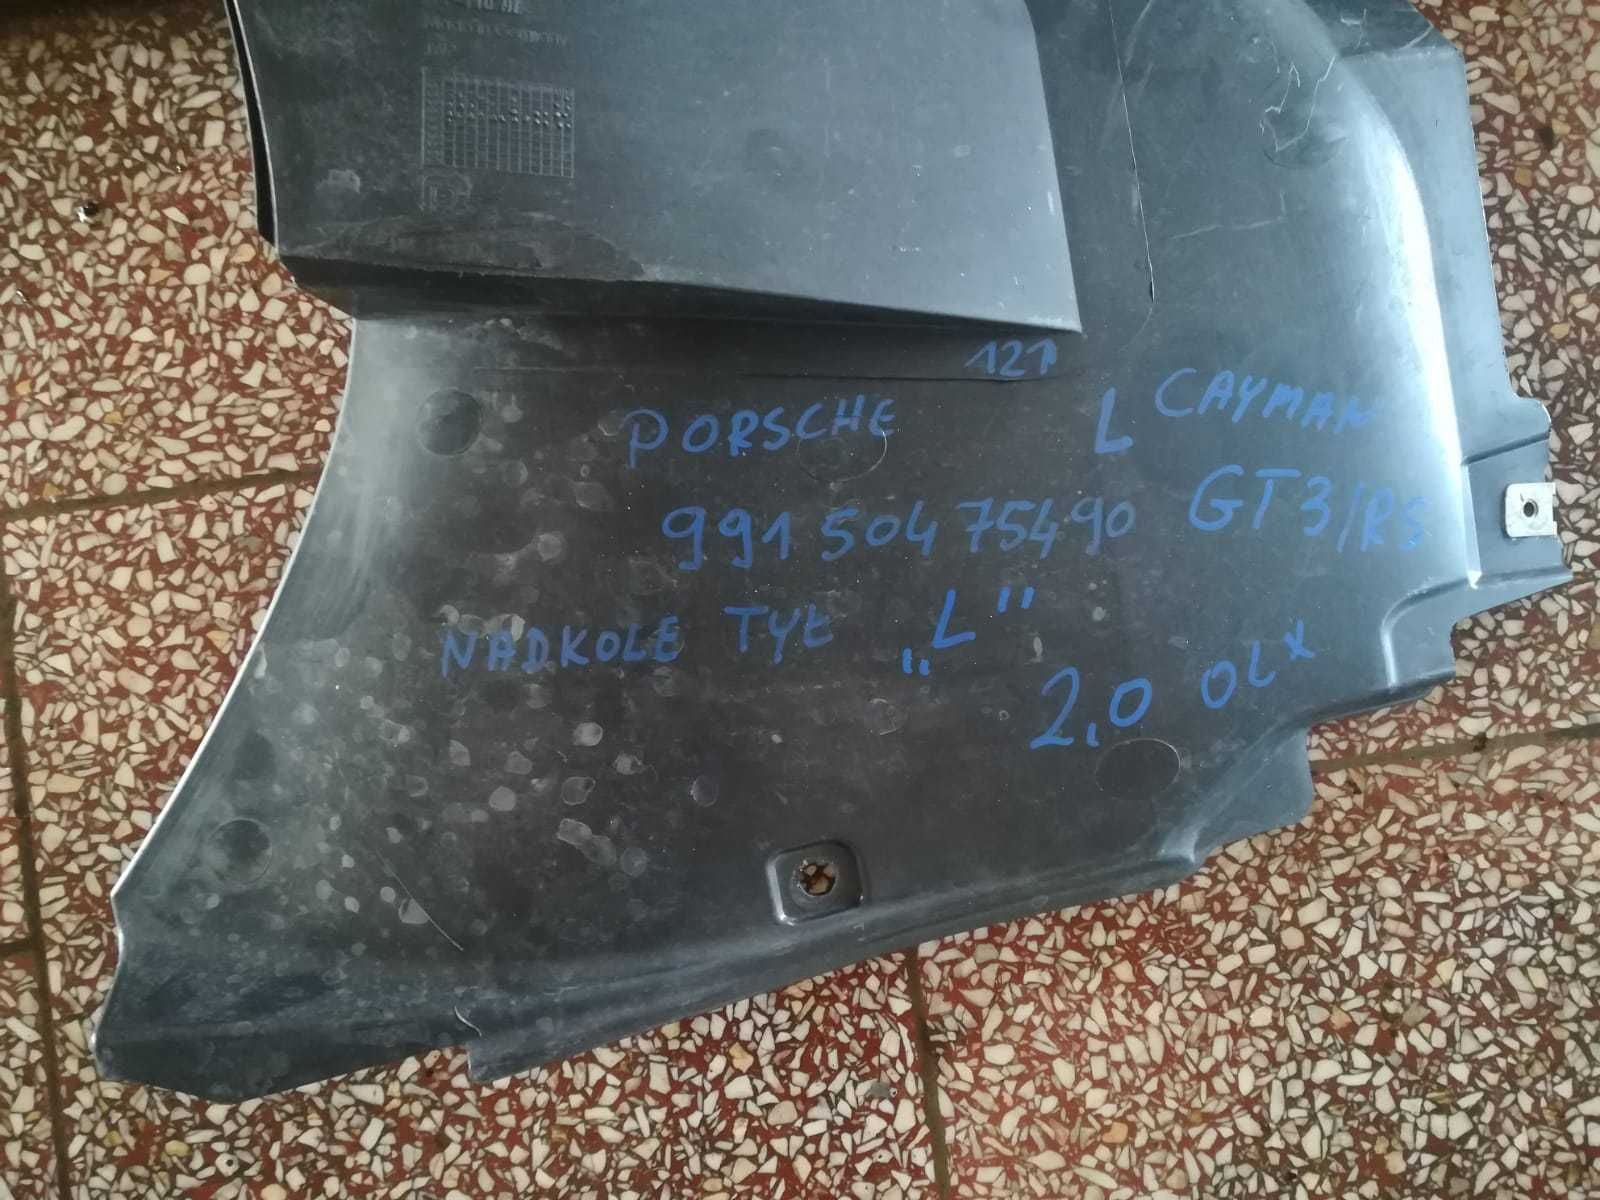 121
PORSCHE L CAYMAN
991 504 754 90 GT3/RS
NADKOLE TYŁ „L”
2,0 OLX